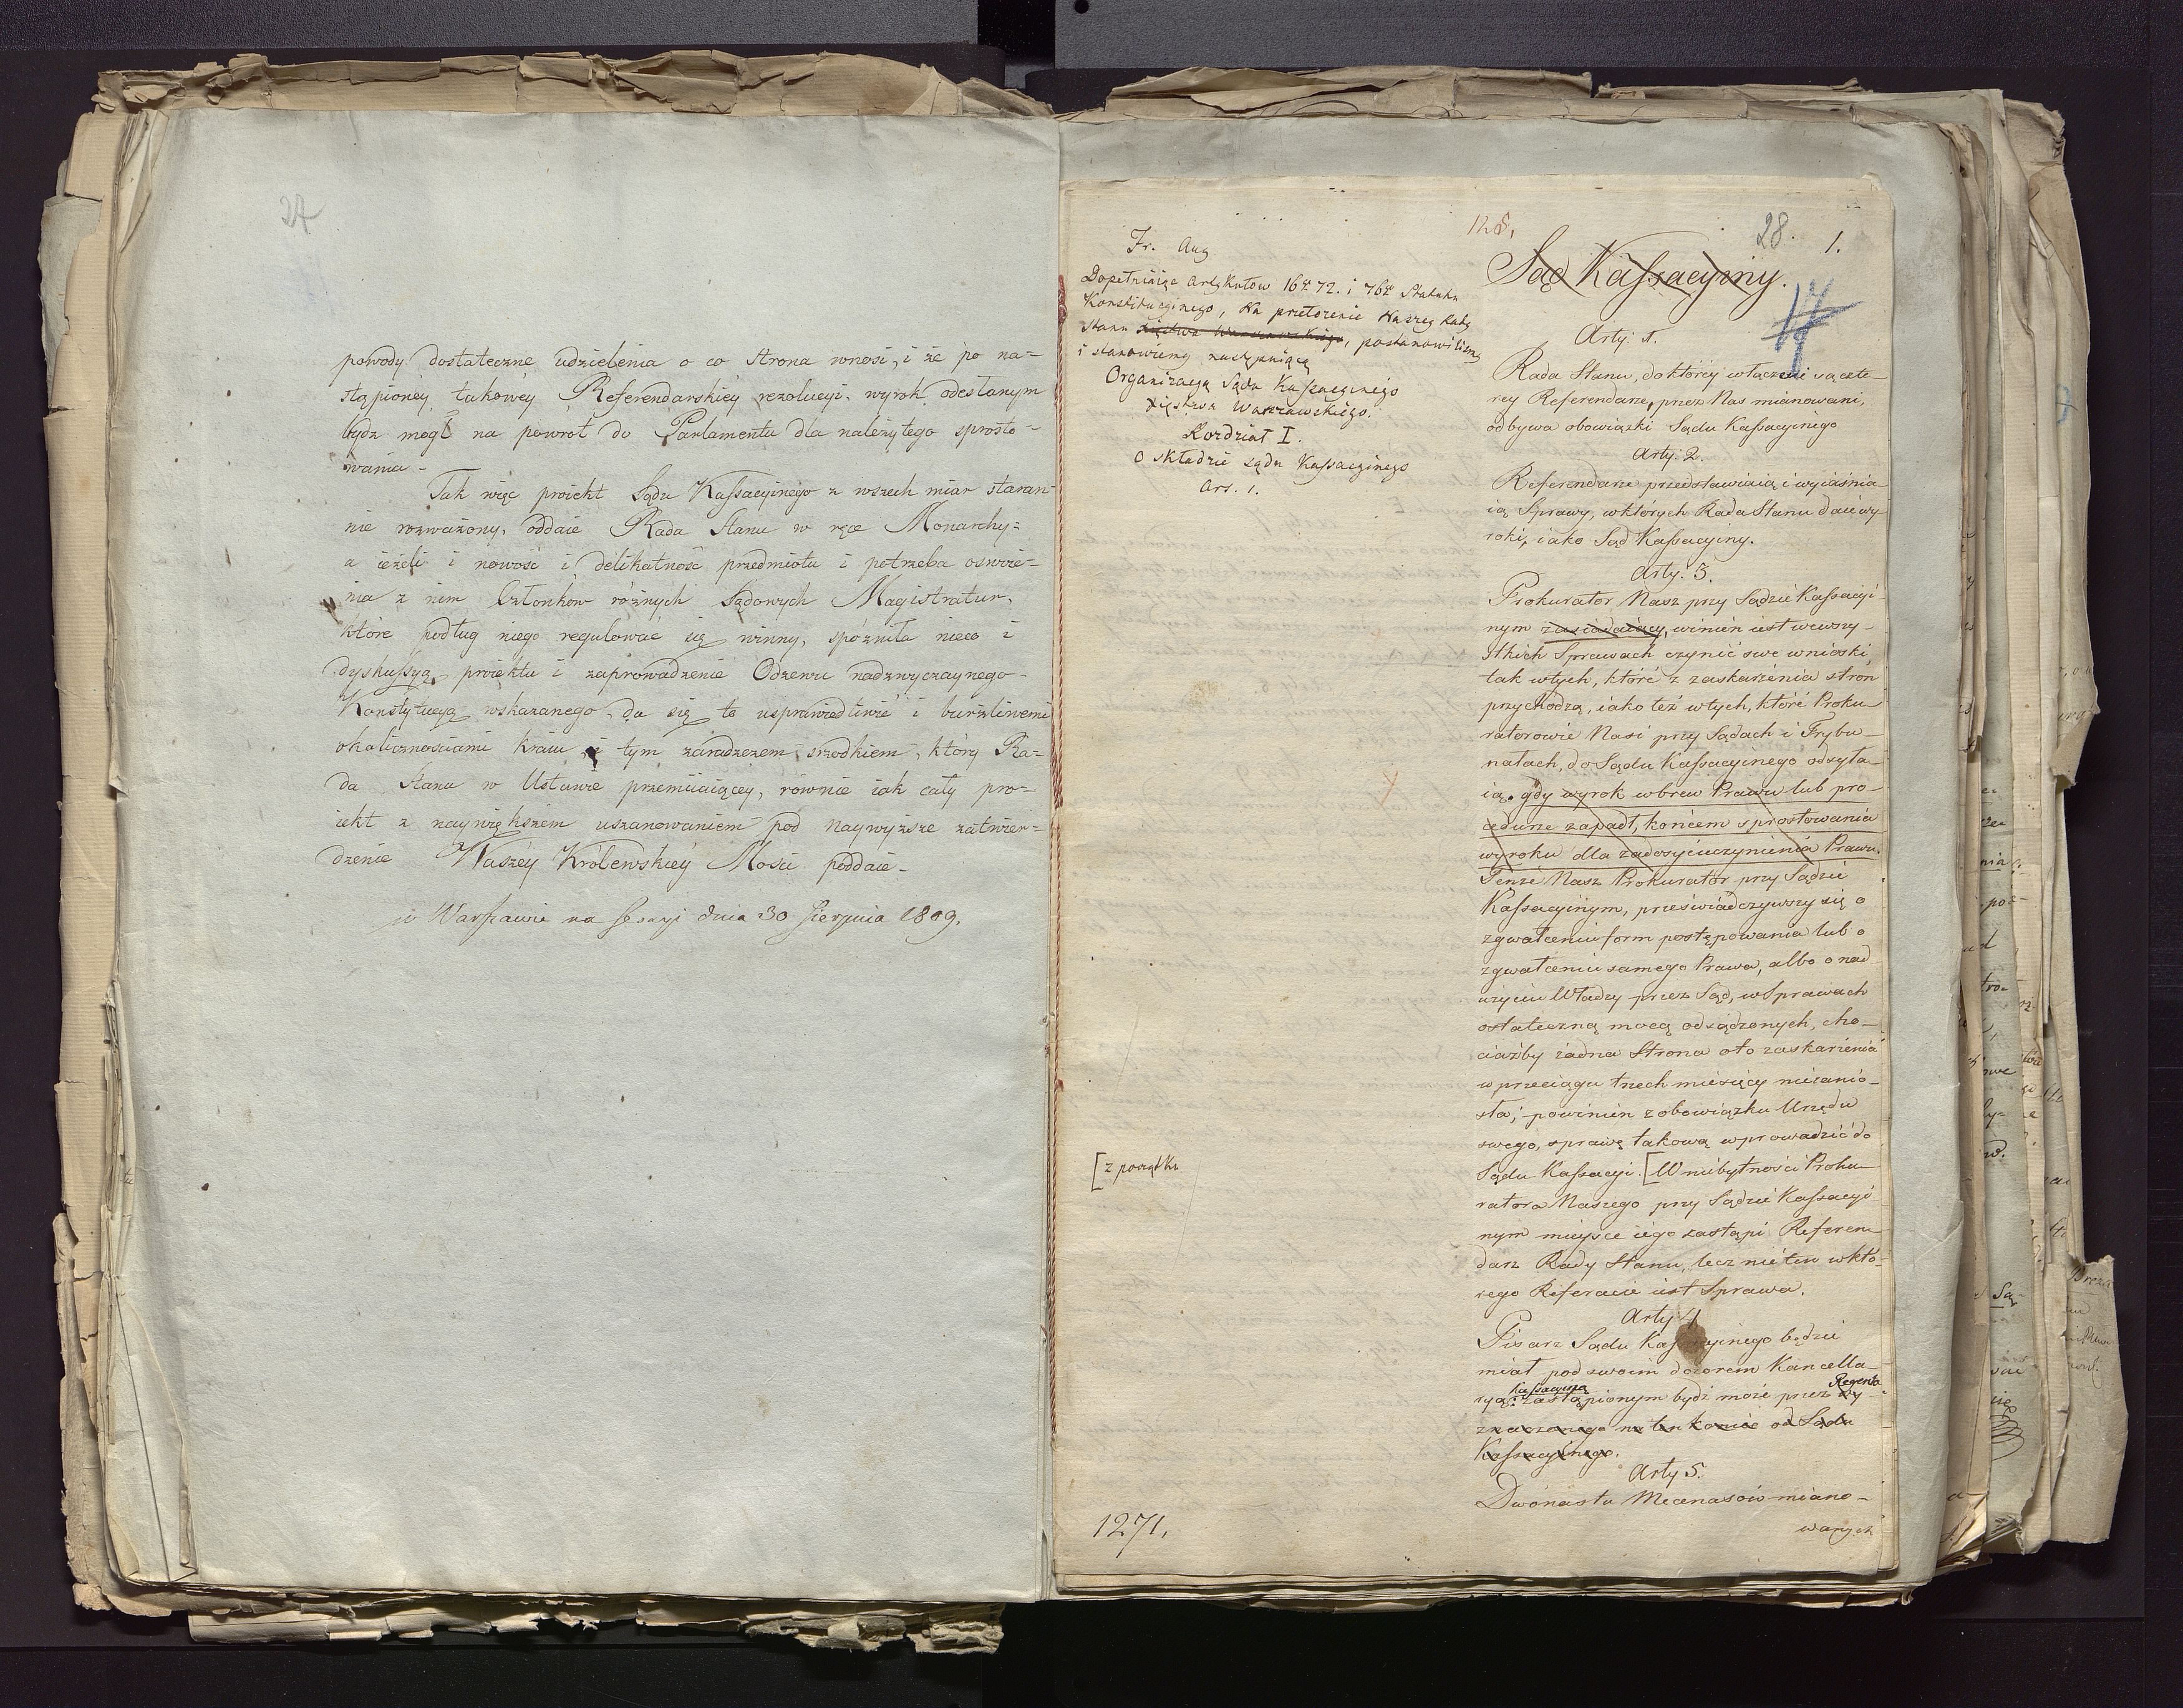 27
powody dostateczne udzielenia o co strona wnosi, i że po na-
stąpioney takowey Referendarskiey rezolucyi, wyrok odesłanym
bydz mogł na powrot do Parlamentu dla należytego sprosto-
wania -
Tak więc proiekt Sądu Kassacyinego z wszech miar staran-
nie rozważony, oddaie Rada Stanu w ręce Monarchy=
a ieżeli i nowość i delikatność przedmiotu i potrzeba oswoie-
nia z nim Członkow różnych Sądowych Magistratur,
które podług niego regulować się winny, spóźniła nieco i
dyskussyą proiektu i zaprowadzenie
Konstytucyą wskazanego, da się to usprawiedliwić i burzliwemi
okolicznościami kraiu i tym zaradczem srzodkiem, który Ra=
da Stanu w Ustawie przemiiaiącey, równie iak cały pro=
iekt z naywiększem uszanowaniem pod naywyższe zatwier=
dzenie Waszéy Królewskiéy Mości poddaie -
w Warszawie na Sessyi dnia 30 Sierpnia 1809.
128,
28.
1.
Fr. Aug
Dopełniaiąc Artykułow 16. 72. i 76 Statutu
Konstitucyinego, Na przełożenie Naszey Rady
Stanu Xięstwa Warszawskiego, postanowiliśmy
i stanowiemy następuiącą
Organizacyą Sądu Kassacyinego
Xięstwa Warszawskiego.
Rozdział I.
O składzie sądu Kassacyinego
Art. 1.
[z początku
1271.
Sąd Kassacyiny.
17
Arty: 1.
Rada Stanu, do którey włączeni są czte-
rey Referendarze, przez Nas mianowani,
odbywa obowiązki Sądu Kassacyinego
Arty: 2.
Referendarze przedstawiaią i wyiaśnia-
ią Sprawy, w których Rada Stanu daie wy-
roki, iako Sąd Kassacyiny.
Arty: 3.
Prokurator Nasz przy Sądzie Kassacyi-
nym zasiadaiący, winien iest we wszy-
stkich Sprawach czynić swe wnioski,
tak w tych, które z zaskarżenia stron
przychodzą, iako też w tych, które Proku-
ratorowie Nasi przy Sądach i Trybu-
nałach, do Sądu Kassacyinego odsyła-
ią. gdy wyrok wbrew Prawu lub pro-
cedurze zapadł, końcem sprostowania
wyroku dla zadosyćuczynienia Prawu.
Tenże Nasz Prokurator przy Sądzie
Kassacyinym, przeświadczywszy się o
zgwałceniu form postępowania lub o
zgwałceniu samego Prawa, albo o nad-
użyciu Władzy przez Sąd, w Sprawach
ostateczną mocą odsądzonych, cho-
ciażby żadna Strona o to zaskarżenia
w przeciągu trzech miesięcy nie zanio-
sła; powinien z obowiązku Urzędu
swego, sprawę takową wprowadzić do
Sądu Kassacyi. [W niebytności Proku-
ratora Naszego przy Sądzie Kassacyi-
nym mieysce iego zastąpi Referen-
darz Rady Stanu, lecz nie ten w któ-
rego Referacie iest Sprawa.
Arty 4
Pisarz Sądu Kassacyinego będzie
miał pod swoim dozorem Kancella-
Kassacyiną Regenta
ryą: zastąpionym bydź może przez wy-
znaczonego na ten koniec od Sądu
Kassacyinego.
Arty 5.
Dwónastu Mecenasów miano-
wanych